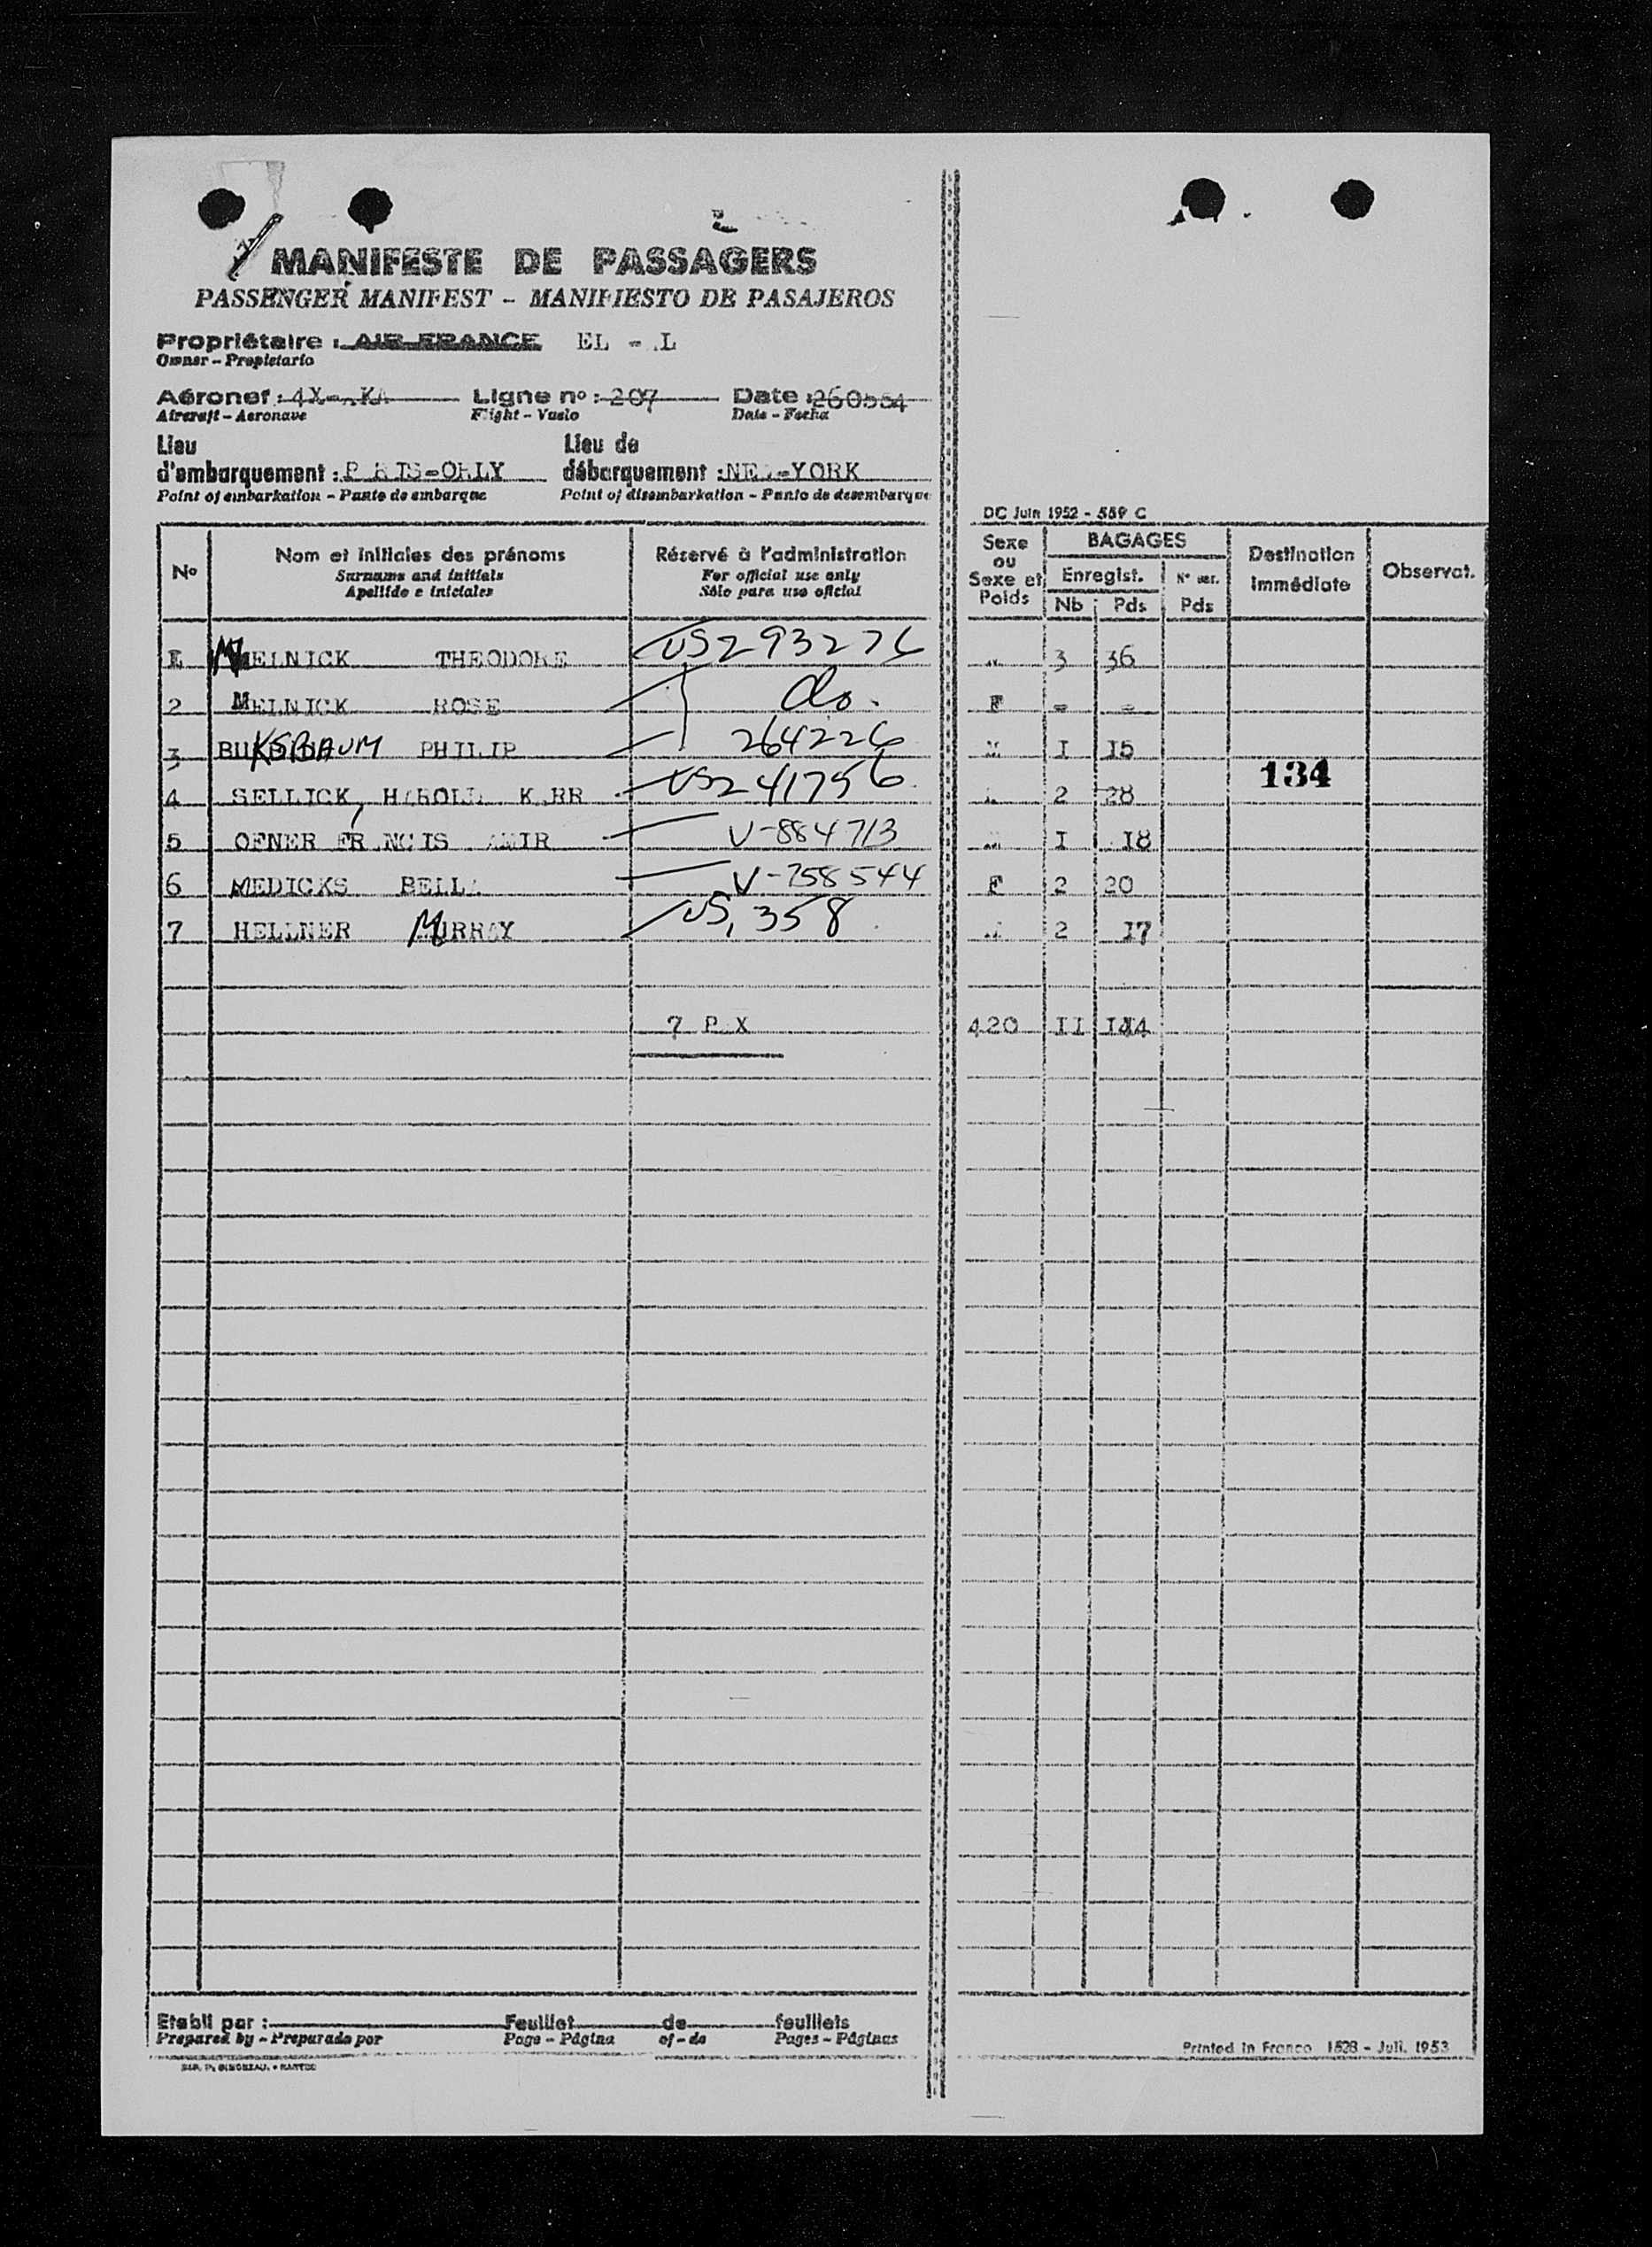 MANIFESTE DE PASSAGERS
PASSENGER MANIFEST - MANIFIESTO DE PASAJEROS
Propriétaire : AIR FRANCE EL - L
Owner - Propietario
Aéronef : 4X- KA Ligne nº : 207 Date : 260554
Aircraft - Aeronave Flight - Vuelo Date - Fecha
Lieu d'embarquement : P RIS-ORLY Lieu de débarquement : NE -YORK
Point of embarkation - Punto de embarque Point of disembarkation - Punto de desembarque
DC Juin 1952 - 559 C
Nº Nom et initiales des prénoms Réservé à l'administration Sexe ou Sexe et Poids BAGAGES Destination immédiate Observat.
Surname and initials For official use only Enregist.
Apellido e iniciales Sólo para uso oficial Nb Pds Pds
1 MELNICK THEODORE US293276 3 36
2 MELNICK ROSE do. F - -
3 BUKSBAUM PHILIP 264226 M I I5
134
4 SELLICK, HAROLD K RR US241756 2 28
5 OFNER FR NCIS MIR V-884713 M I I8
6 MEDICKS BELL V-758544 F 2 20
7 HELLNER MURRAY US, 358 2 I7
7 P X 420 II I34
Etabli par : Feuillet de feuillets
Prepared by - Preparado por Page - Página of - de Pages - Páginas
Printed in France 1528 - Juil. 1953